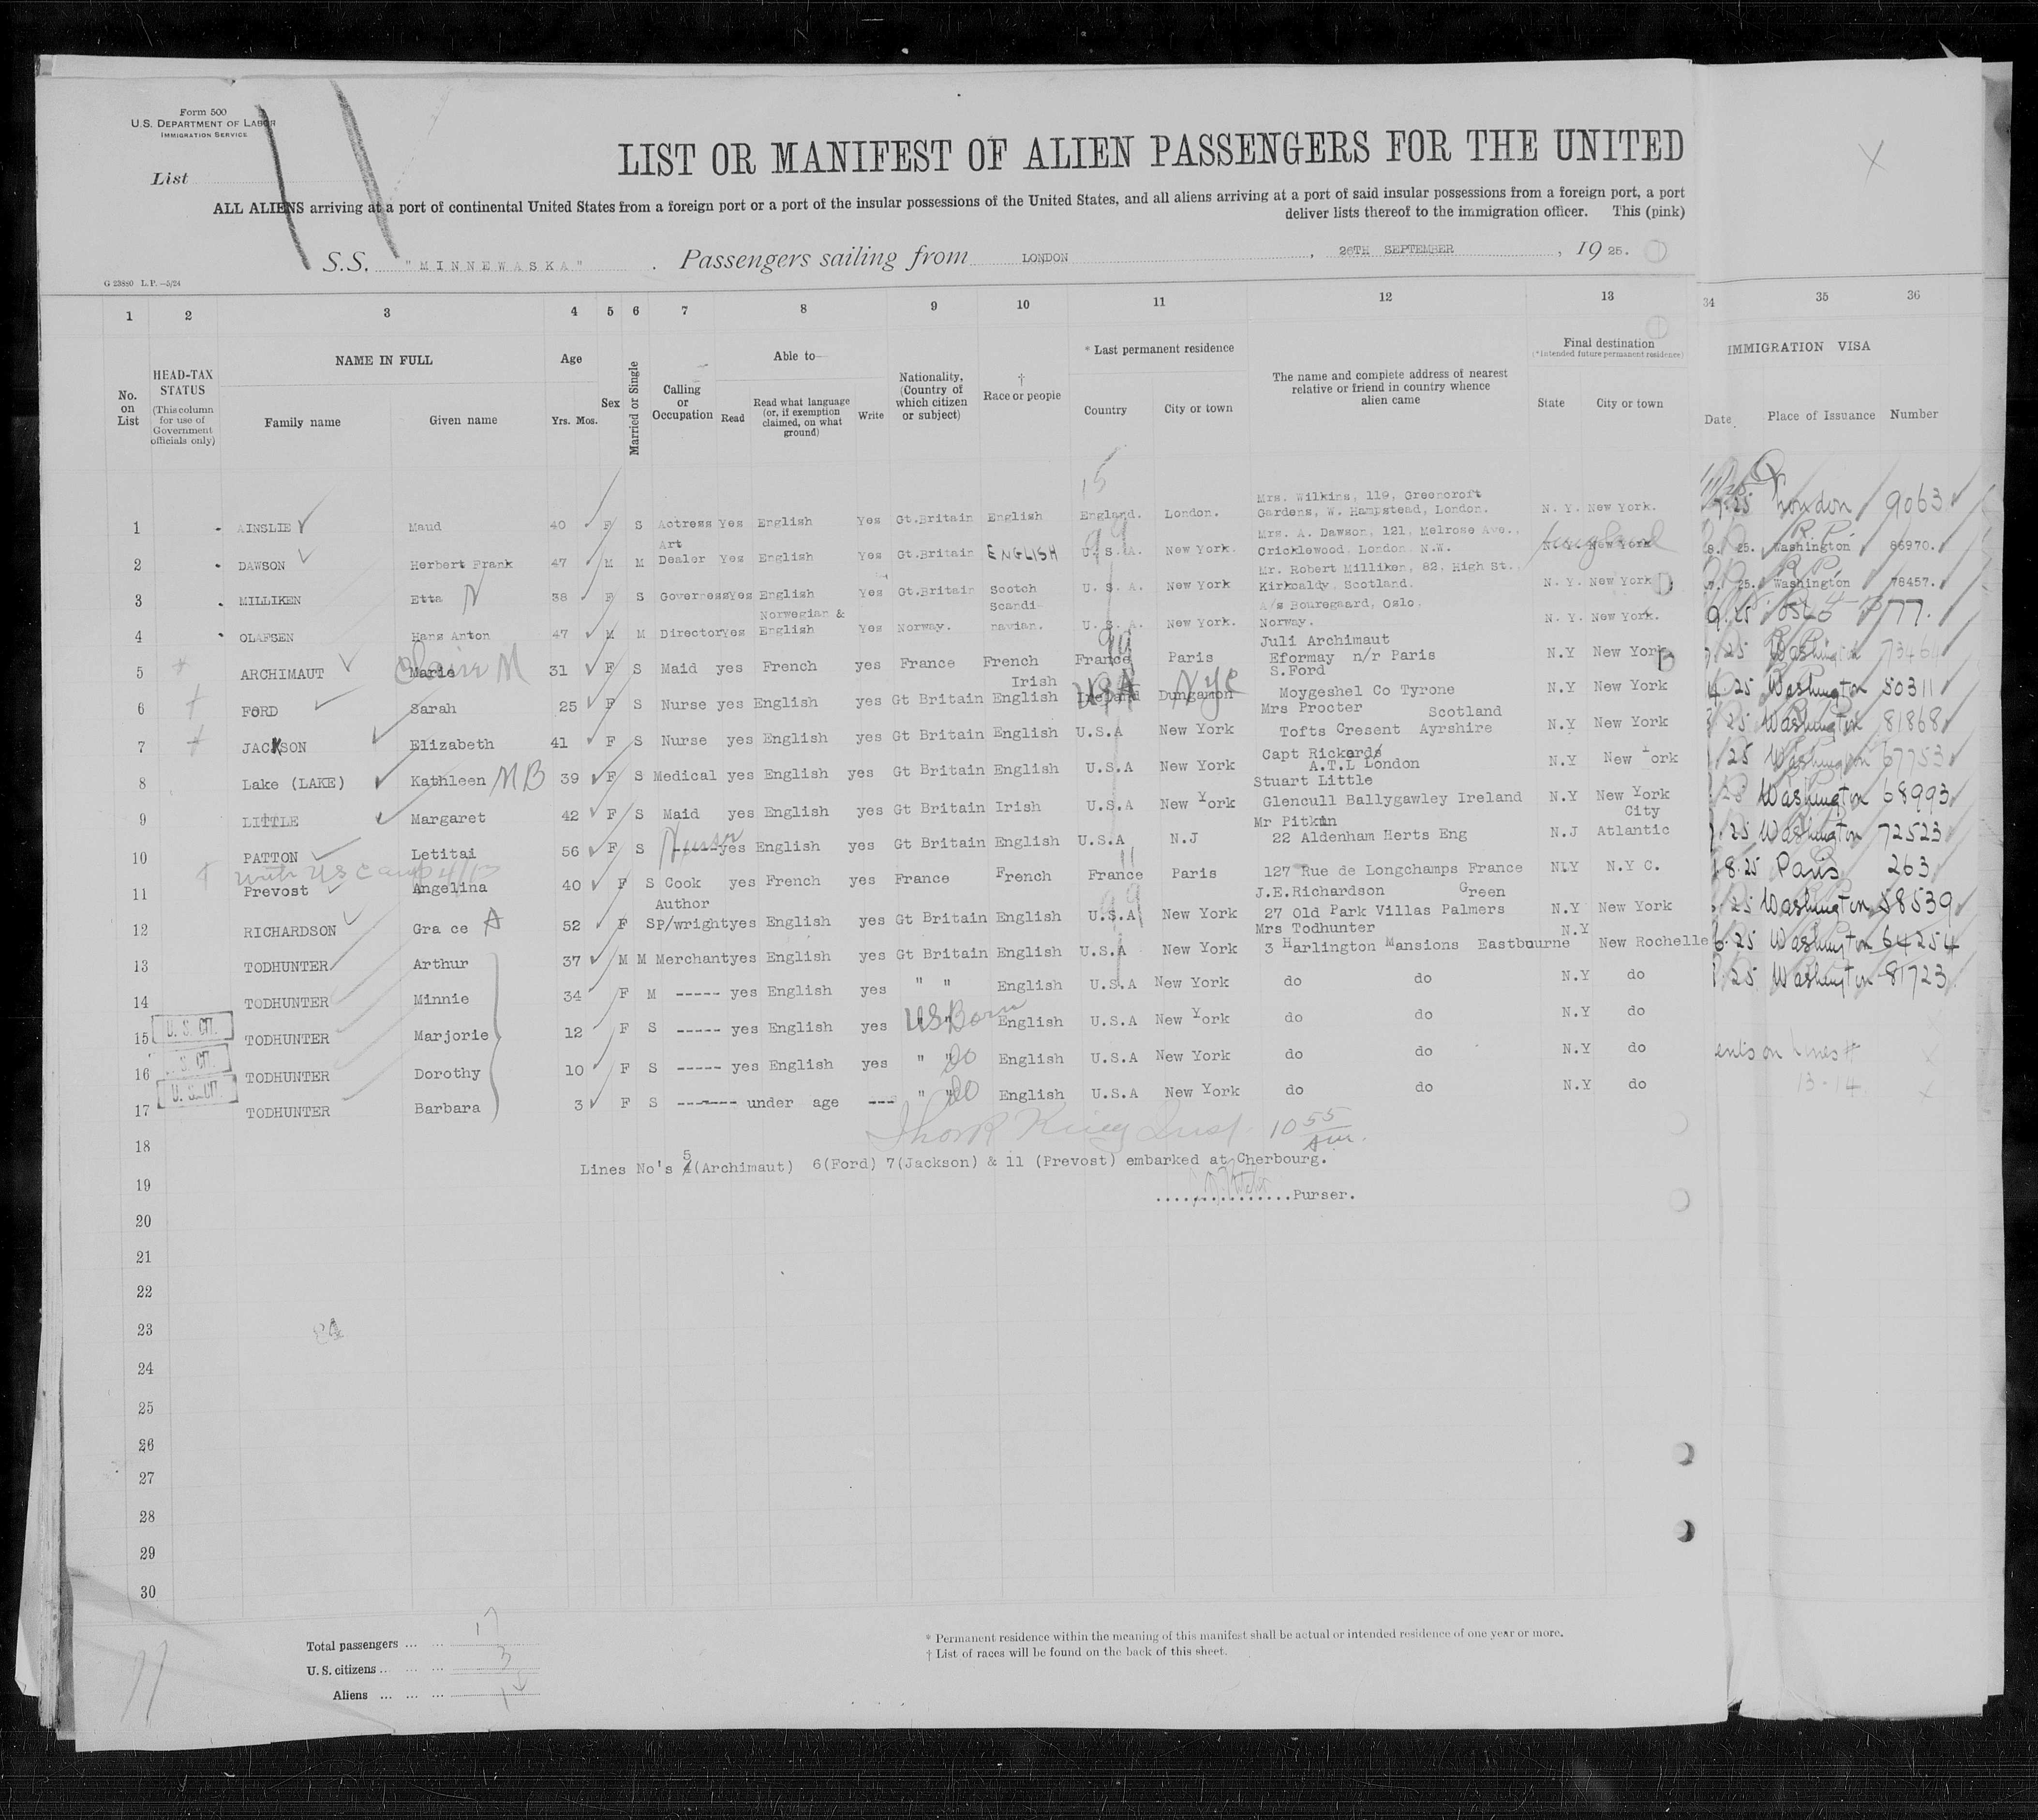 Form 500
U.S. DEPARTMENT OF LABOR
IMMIGRATION SERVICE
List
LIST OR MANIFEST OF ALIEN PASSENGERS FOR THE UNITED
ALL ALIENS arriving at a port of continental United States from a foreign port or a port of the insular possessions of the United States, and all aliens arriving at a port of said insular possessions from a foreign port, a port
deliver lists thereof to the immigration officer. This (pink)
S.S. "MINNEWASKA". Passengers sailing from LONDON, 26TH SEPTEMBER, 1925.
G 23880 L.P.—5/24
1 2 3 4 5 6 7 8 9 10 11 12 13 34 35 36
No. on List
HEAD-TAX STATUS (This column for use of Government officials only)
NAME IN FULL
Family name Given name
Age
Yrs. Mos.
Sex
Married or Single
Calling or Occupation
Able to—
Read Read what language (or, if exemption claimed, on what ground) Write
Nationality, (Country of which citizen or subject)
† Race or people
* Last permanent residence
Country City or town
The name and complete address of nearest relative or friend in country whence alien came
Final destination
(*Intended future permanent residence)
State City or town
IMMIGRATION VISA
Date Place of Issuance Number
15
Mrs. Wilkins, 119, Greencroft
1 AINSLIE Maud 40 F S Actress Yes English Yes Gt.Britain English England. London. Gardens, W. Hampstead, London. N. Y. New York. 7.25 London 9063
Art Mrs. A. Dawson, 121, Melrose Ave., R.P.
2 DAWSON Herbert Frank 47 M M Dealer Yes English Yes Gt.Britain ENGLISH U. S. A. New York. Cricklewood, London N.W. N. Y. New York England 8. 25. Washington 86970.
Mr. Robert Milliken, 82, High St., R.P.
3 MILLIKEN Etta N 38 F S Governess Yes English Yes Gt.Britain Scotch U. S. A. New York Kirkcaldy, Scotland. N. Y. New York 7. 25. Washington 78457.
Norwegian & Scandi- A/s Bouregaard, Oslo,
4 OLAFSEN Hans Anton 47 M M Director Yes English Yes Norway. navian. U. S. A. New York. Norway. N. Y. New York. 9.25 Oslo 77.
Juli Archimaut
5 ARCHIMAUT Marie Claire M 31 F S Maid yes French yes France French France Paris Eformay n/r Paris N.Y New York 25 Washington 73464
Irish S.Ford
6 FORD Sarah 25 F S Nurse yes English yes Gt Britain English Ireland USA Dungannon NYC Moygeshel Co Tyrone N.Y New York 25 Washington 50311
Mrs Procter Scotland
7 JACKSON Elizabeth 41 F S Nurse yes English yes Gt Britain English U.S.A New York Tofts Cresent Ayrshire N.Y New York 25 Washington 81868
Capt Rickards
8 Lake (LAKE) Kathleen MB 39 F S Medical yes English yes Gt Britain English U.S.A New York A.T.L London N.Y New York 25 Washington 67753
Stuart Little
9 LITTLE Margaret 42 F S Maid yes English yes Gt Britain Irish U.S.A New York Glencull Ballygawley Ireland N.Y New York 25 Washington 68993
Mr Pitkin City
10 PATTON Letitai 56 F S Nurse yes English yes Gt Britain English U.S.A N.J 22 Aldenham Herts Eng N.J Atlantic 25 Washington 72523
with US
11 Prevost Angelina 40 F S Cook yes French yes France French France Paris 127 Rue de Longchamps France N.Y N.Y C. 8.25 Paris 263
Author J.E.Richardson Green
12 RICHARDSON Gra ce A 52 F S P/wright yes English yes Gt Britain English U.S.A New York 27 Old Park Villas Palmers N.Y New York 25 Washington 58539
Mrs Todhunter
13 TODHUNTER Arthur 37 M M Merchant yes English yes Gt Britain English U.S.A New York 3 Harlington Mansions Eastbourne N.Y New Rochelle 6.25 Washington 64254
14 TODHUNTER Minnie 34 F M ----- yes English yes " " English U.S.A New York do do N.Y do 25 Washington 81723
15 U. S. CIT. TODHUNTER Marjorie 12 F S ----- yes English yes US Born English U.S.A New York do do N.Y do
16 U. S. CIT. TODHUNTER Dorothy 10 F S ----- yes English yes " " do English U.S.A New York do do N.Y do ents on Lines #
17 U. S. CIT. TODHUNTER Barbara 3 F S ------- under age --- " " do English U.S.A New York do do N.Y do 13-14
18 King Insp. 10 55 AM.
Lines No's 5(Archimaut) 6(Ford) 7(Jackson) & 11 (Prevost) embarked at Cherbourg.
19
................Purser.
20
21
22
23
24
25
26
27
28
29
30
Total passengers ... ... 17
U. S. citizens ... ... ... 3
Aliens ... ... ...
* Permanent residence within the meaning of this manifest shall be actual or intended residence of one year or more.
† List of races will be found on the back of this sheet.
11